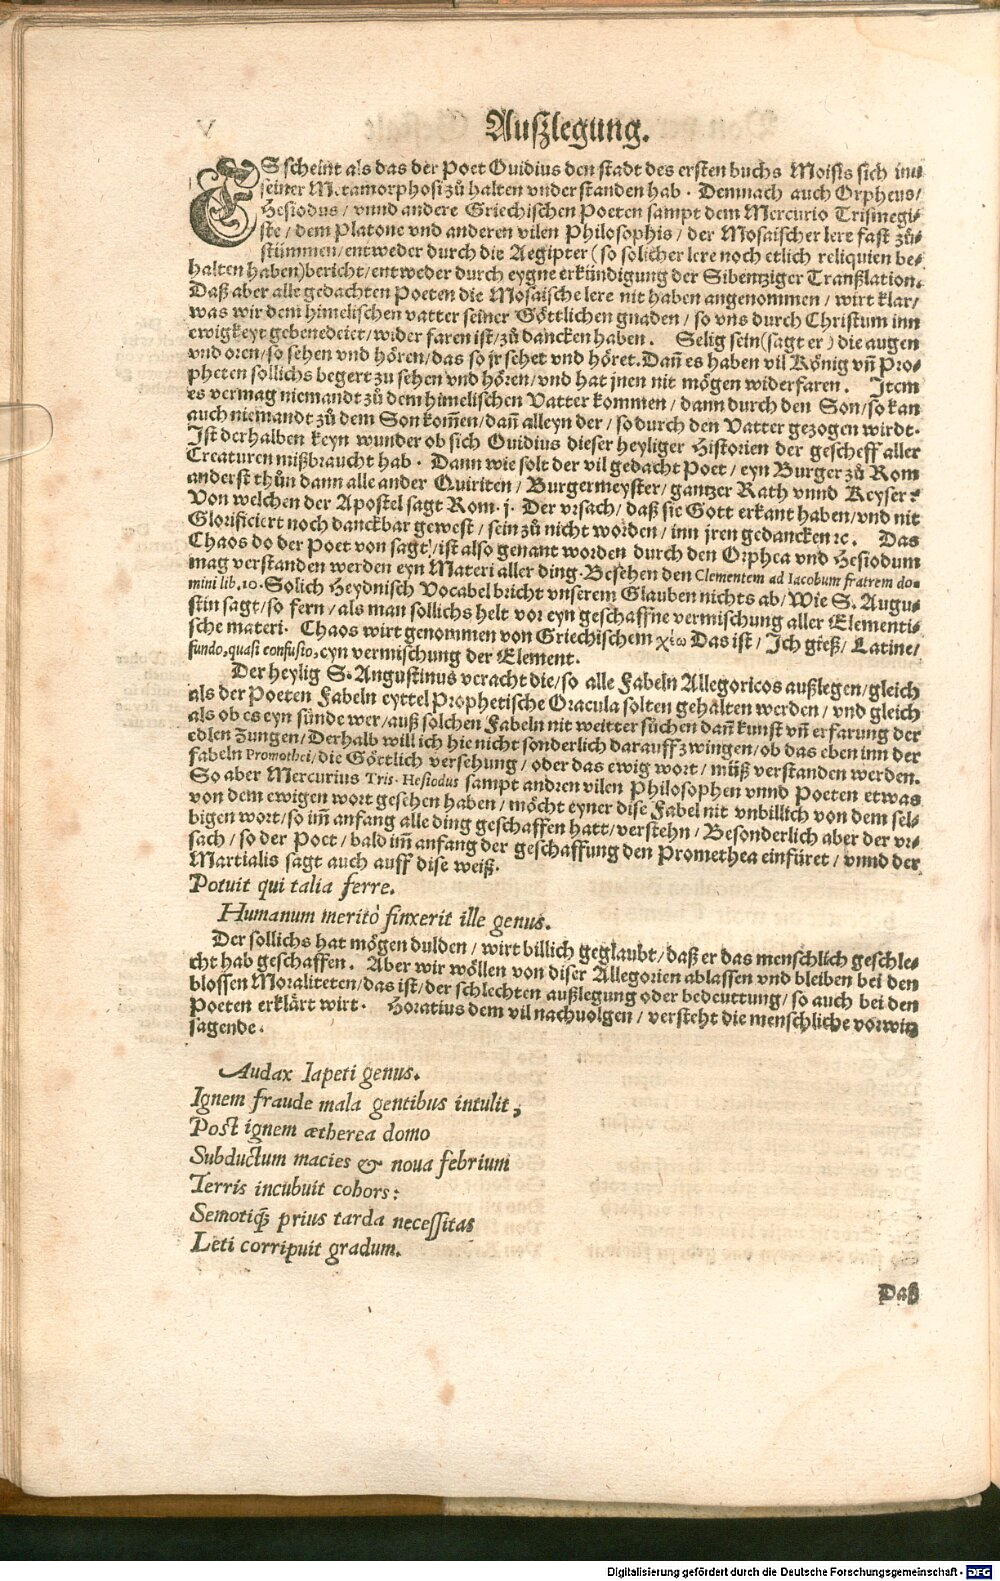 Außlegung.
ES scheint als das der Poet Ouidius den stadt des ersten buchs Moisis sich inn
seiner Metamorphosi zů halten vnderstanden hab. Demnach auch Orpheus/
Hesiodus/ vnnd andere Griechischen Poeten sampt dem Mercurio Trismegi-
ste/ dem Platone vnd anderen vilen Philosophis/ der Mosaischer lere fast zů-
stimmen/ entweder durch die Aegipter (so solicher lere noch etlich reliquien be-
halten haben) bericht/ entweder durch eygne erkündigung der Sibentziger Tranßlation.
Daß aber alle gedachten Poeten die Mosaische lere nit haben angenommen/ wirt klar/
was wir dem himelischen vatter seiner Göttlichen gnaden/ so vns durch Christum inn
ewigkeyt gebenedeiet/ widerfaren ist/ zů dancken haben. Selig sein (sagt er) die augen
vnd oren/ so sehen vnd hören/ das so jr sehet vnd höret. Dañ es haben vil König vñ Pro-
pheten sollichs begert zu sehen vnd hören/ vnd hat jnen nit mögen widerfaren. Item
es vermag niemandt zů dem himelischen Vatter kommen/ dann durch den Son/ so kan
auch niemandt zů dem Son kom̃en/ dañ alleyn der/ so durch den Vatter gezogen wirdt.
Ist derhalben keyn wunder ob sich Ouidius dieser heyliger Historien der gescheff aller
Creaturen mißbraucht hab. Dann wie solt der vil gedacht Poet/ eyn Burger zů Rom
anderst thůn dann alle ander Quiriten/ Burgermeyster/ gantzer Rath vnnd Keyser?
Von welchen der Apostel sagt Rom. j. Der vrsach/ daß sie Gott erkant haben/ vnd nit
Glorificiert noch danckbar gewest/ sein zů nicht worden/ inn jren gedancken ꝛc. Das
Chaos do der Poet von sagt/ ist also genant worden durch den Orphea vnd Hesiodum
mag verstanden werden eyn Materi aller ding. Besehen den Clementem ad Iacobum fratrem do-
mini lib. 10. Solich Heydnisch Vocabel bricht vnserem Glauben nichts ab/ Wie S. Augu-
stin sagt/ so fern/ als man sollichs helt vor eyn geschaffne vermischung aller Elementi-
sche materi. Chaos wirt genommen von Griechischem χέω Das ist/ Ich gieß/ Latine/
fundo, quasi confusio, eyn vermischung der Element.
Der heylig S. Augustinus veracht die/ so alle Fabeln Allegoricos außlegen/ gleich
als der Poeten Fabeln eyttel Prophetische Oracula solten gehalten werden/ vnd gleich
als ob es eyn sünde wer/ auß solchen Fabeln nit weitter süchen dañ kunst vñ erfarung der
edlen Zungen/ Derhalb will ich hie nicht sonderlich darauff zwingen/ ob das eben inn der
fabeln Promothei/ die Göttlich versehung/ oder das ewig wort/ müß verstanden werden.
So aber Mercurius Tris. Hesiodus sampt andren vilen Philosophen vnnd Poeten etwas
von dem ewigen wort gesehen haben/ möcht eyner dise Fabel nit vnbillich von dem sel-
bigen wort/ so im̃ anfang alle ding geschaffen hatt/ verstehn/ Besonderlich aber der vr-
sach/ so der Poet/ bald im̃ anfang der geschaffung den Promethea einfüret/ vnnd der
Martialis sagt auch auff dise weiß.
Potuit qui talia ferre.
Humanum meritò finxerit ille genus.
Der sollichs hat mögen dulden/ wirt billich geglaubt/ daß er das menschlich geschle-
cht hab geschaffen. Aber wir wöllen von diser Allegorien ablassen vnd bleiben bei den
blossen Moraliteten/ das ist/ der schlechten außlegung oder bedeuttung/ so auch bei den
Poeten erklärt wirt. Horatius dem vil nachuolgen/ versteht die menschliche vorwitz
sagende.
Audax Iapeti genus.
Ignem fraude mala gentibus intulit,
Post ignem ætherea domo
Subductum macies & noua febrium
Terris incubuit cohors:
Semotiq́; prius tarda necessitas
Leti corripuit gradum.
Daß
Digitalisierung gefördert durch die Deutsche Forschungsgemeinschaft - DFG